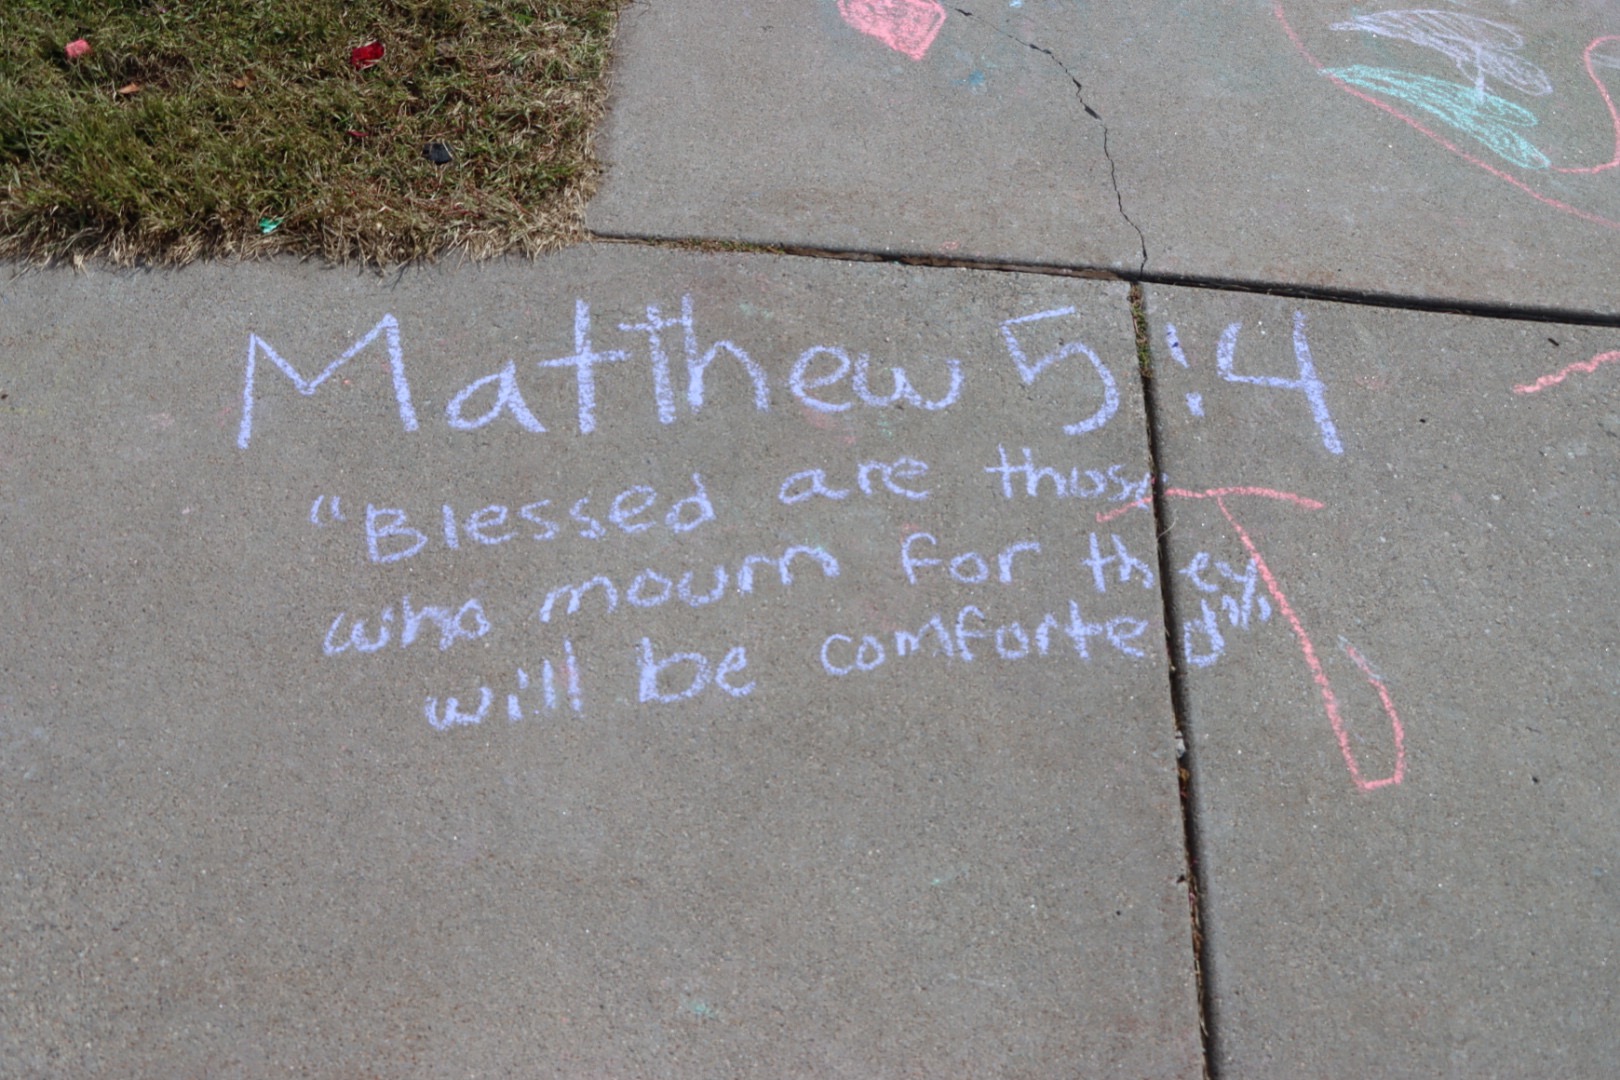 Matthew 5:4
"Blessed are those
who mourn for they
will be comforted"